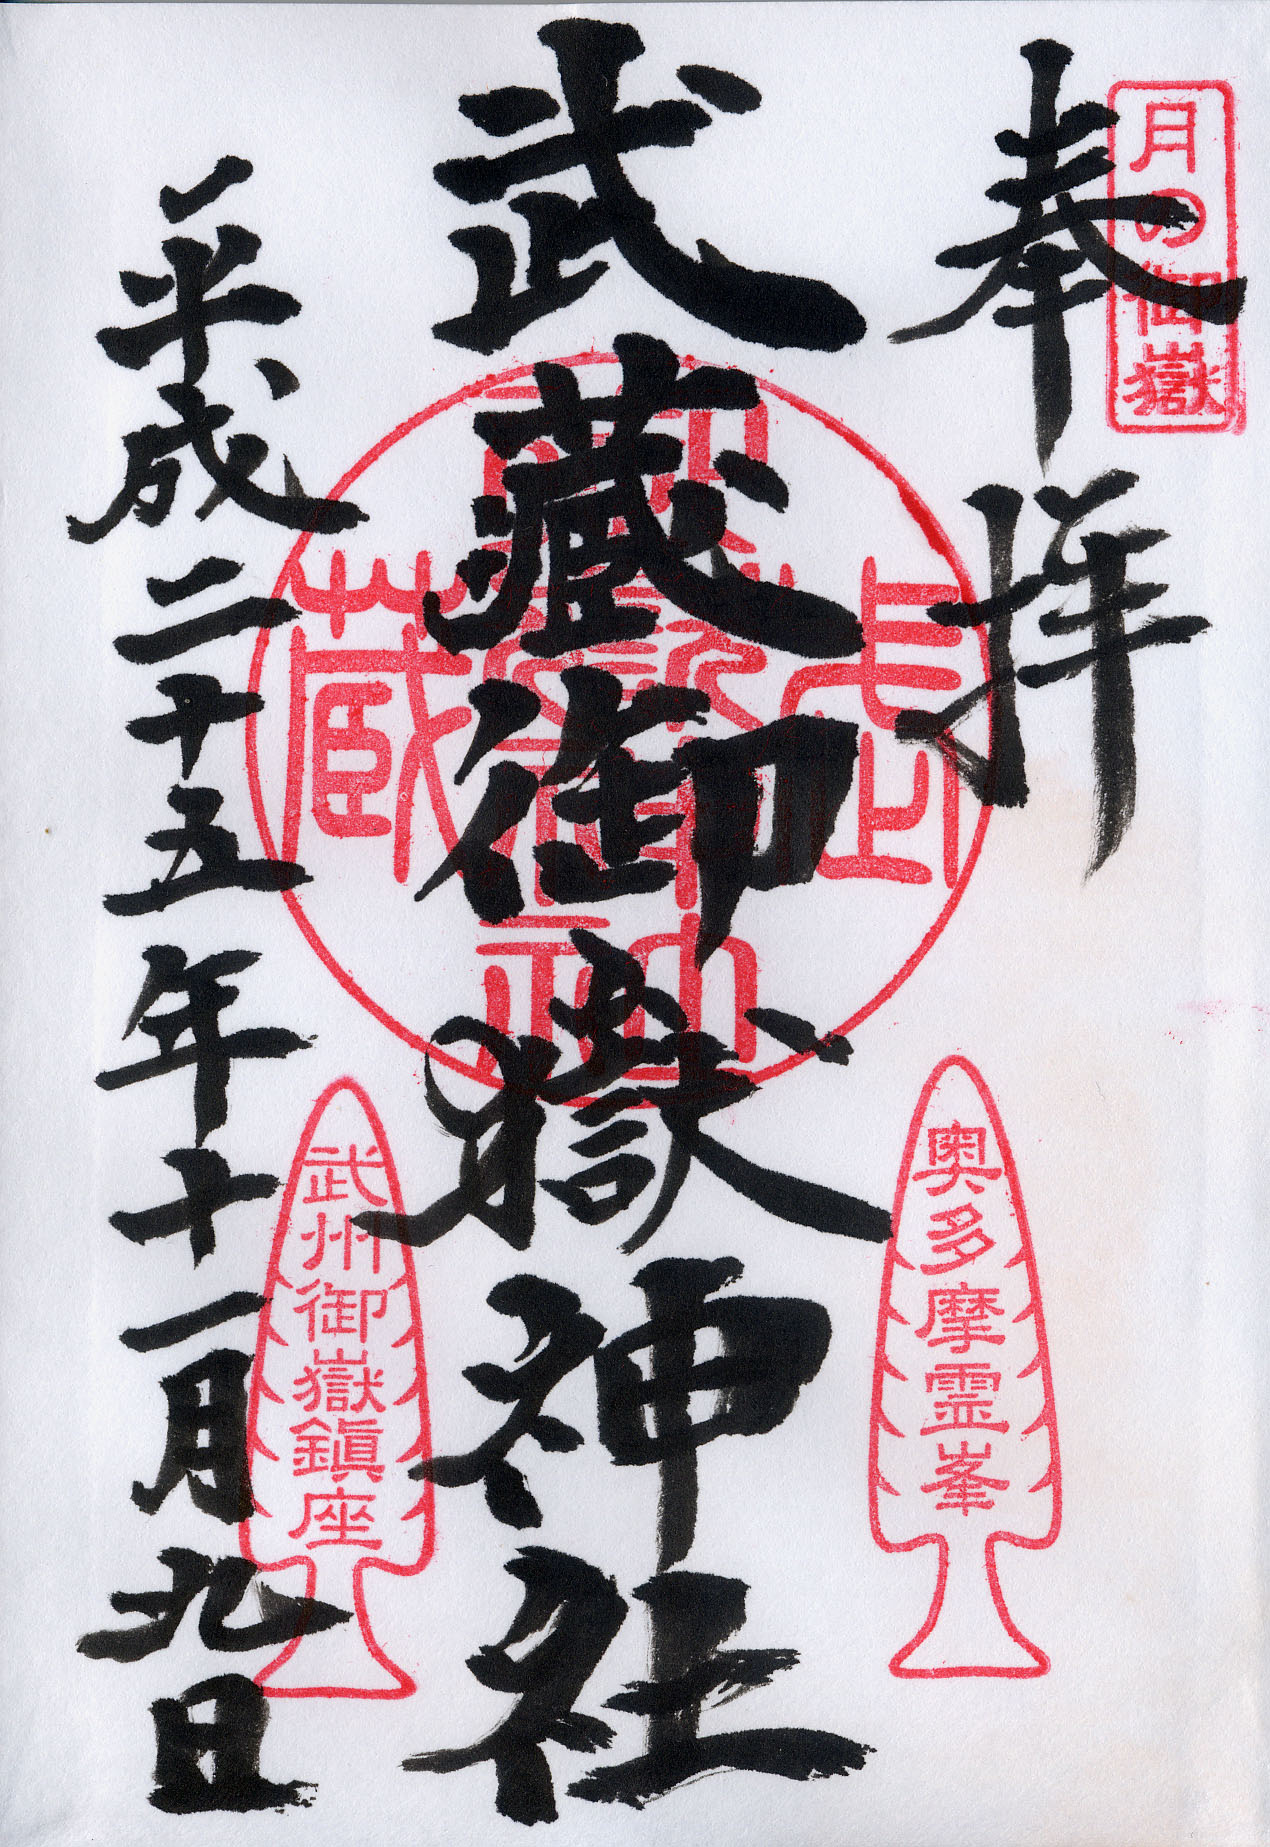 月の御嶽
奉拝
奥多摩霊峯
武藏御嶽神社
武州御嶽鎮座
平成二十五年十一月九日